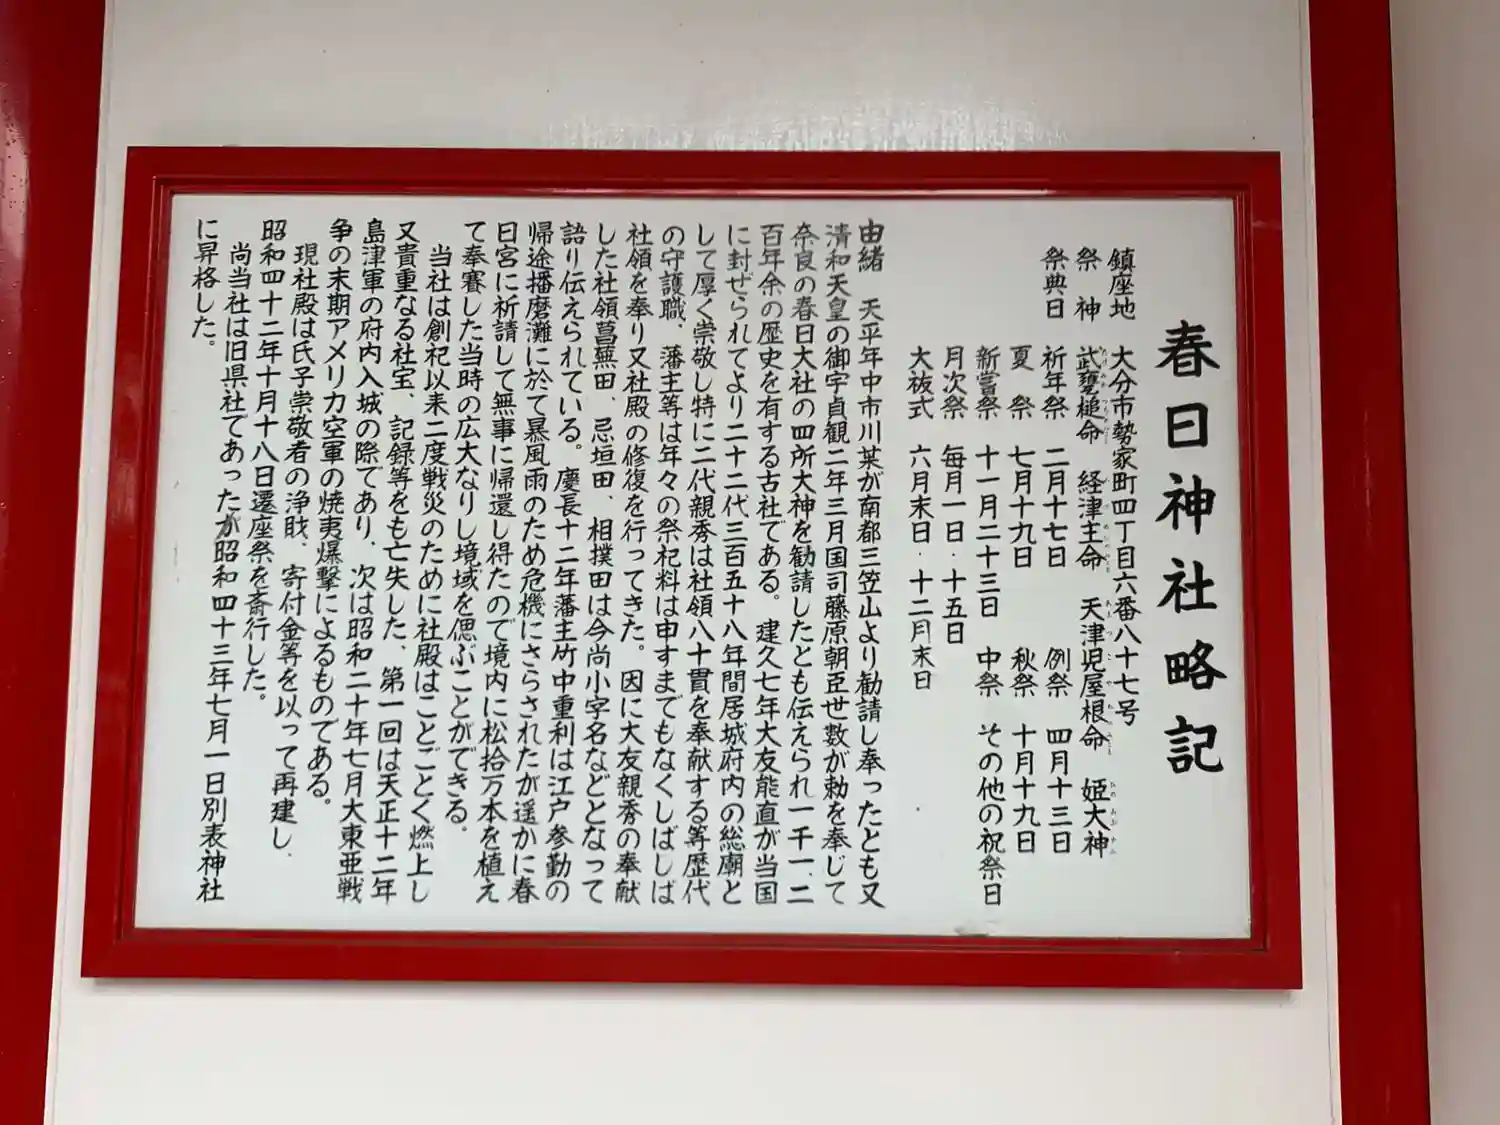 春日神社略記
鎮座地 大分市勢家町四丁目六番八十七号
祭神 武甕槌命 経津主命 天津児屋根命 姫大神
祭典日 祈年祭 二月十七日 例祭 四月十三日
夏祭 七月十九日 秋祭 十月十九日
新嘗祭 十一月二十三日 中祭 その他の祝祭日
月次祭 毎月一日・十五日
大祓式 六月末日・十二月末日
由緒 天平年中市川某が南都三笠山より勧請し奉ったとも又
清和天皇の御宇貞観二年三月国司藤原朝臣世数が勅を奉じて
奈良の春日大社の四所大神を勧請したとも伝えられ一千一、二
百年余の歴史を有する古社である。建久七年大友能直が当国
に封ぜられてより二十二代三百五十八年間居城府内の総廟と
して厚く崇敬し特に二代親秀は社領八十貫を奉献する等歴代
の守護職、藩主等は年々の祭祀料は申すまでもなくしばしば
社領を奉り又社殿の修復を行ってきた。因に大友親秀の奉献
した社領菖蕪田、忌垣田、相撲田は今尚小字名などとなって
語り伝えられている。慶長十二年藩主竹中重利は江戸参勤の
帰途播磨灘に於て暴風雨のため危機にさらされたが遥かに春
日宮に祈請して無事に帰還し得たので境内に松拾万本を植え
て奉賽した当時の広大なりし境域を偲ぶことができる。
当社は創祀以来二度戦災のために社殿はことごとく燃上し
又貴重なる社宝、記録等をも亡失した、第一回は天正十二年
島津軍の府内入城の際であり、次は昭和二十年七月大東亜戦
争の末期アメリカ空軍の焼夷爆撃によるものである。
現社殿は氏子崇敬者の浄財、寄付金等を以って再建し、
昭和四十二年十月十八日遷座祭を斎行した。
尚当社は旧県社であったが昭和四十三年七月一日別表神社
に昇格した。